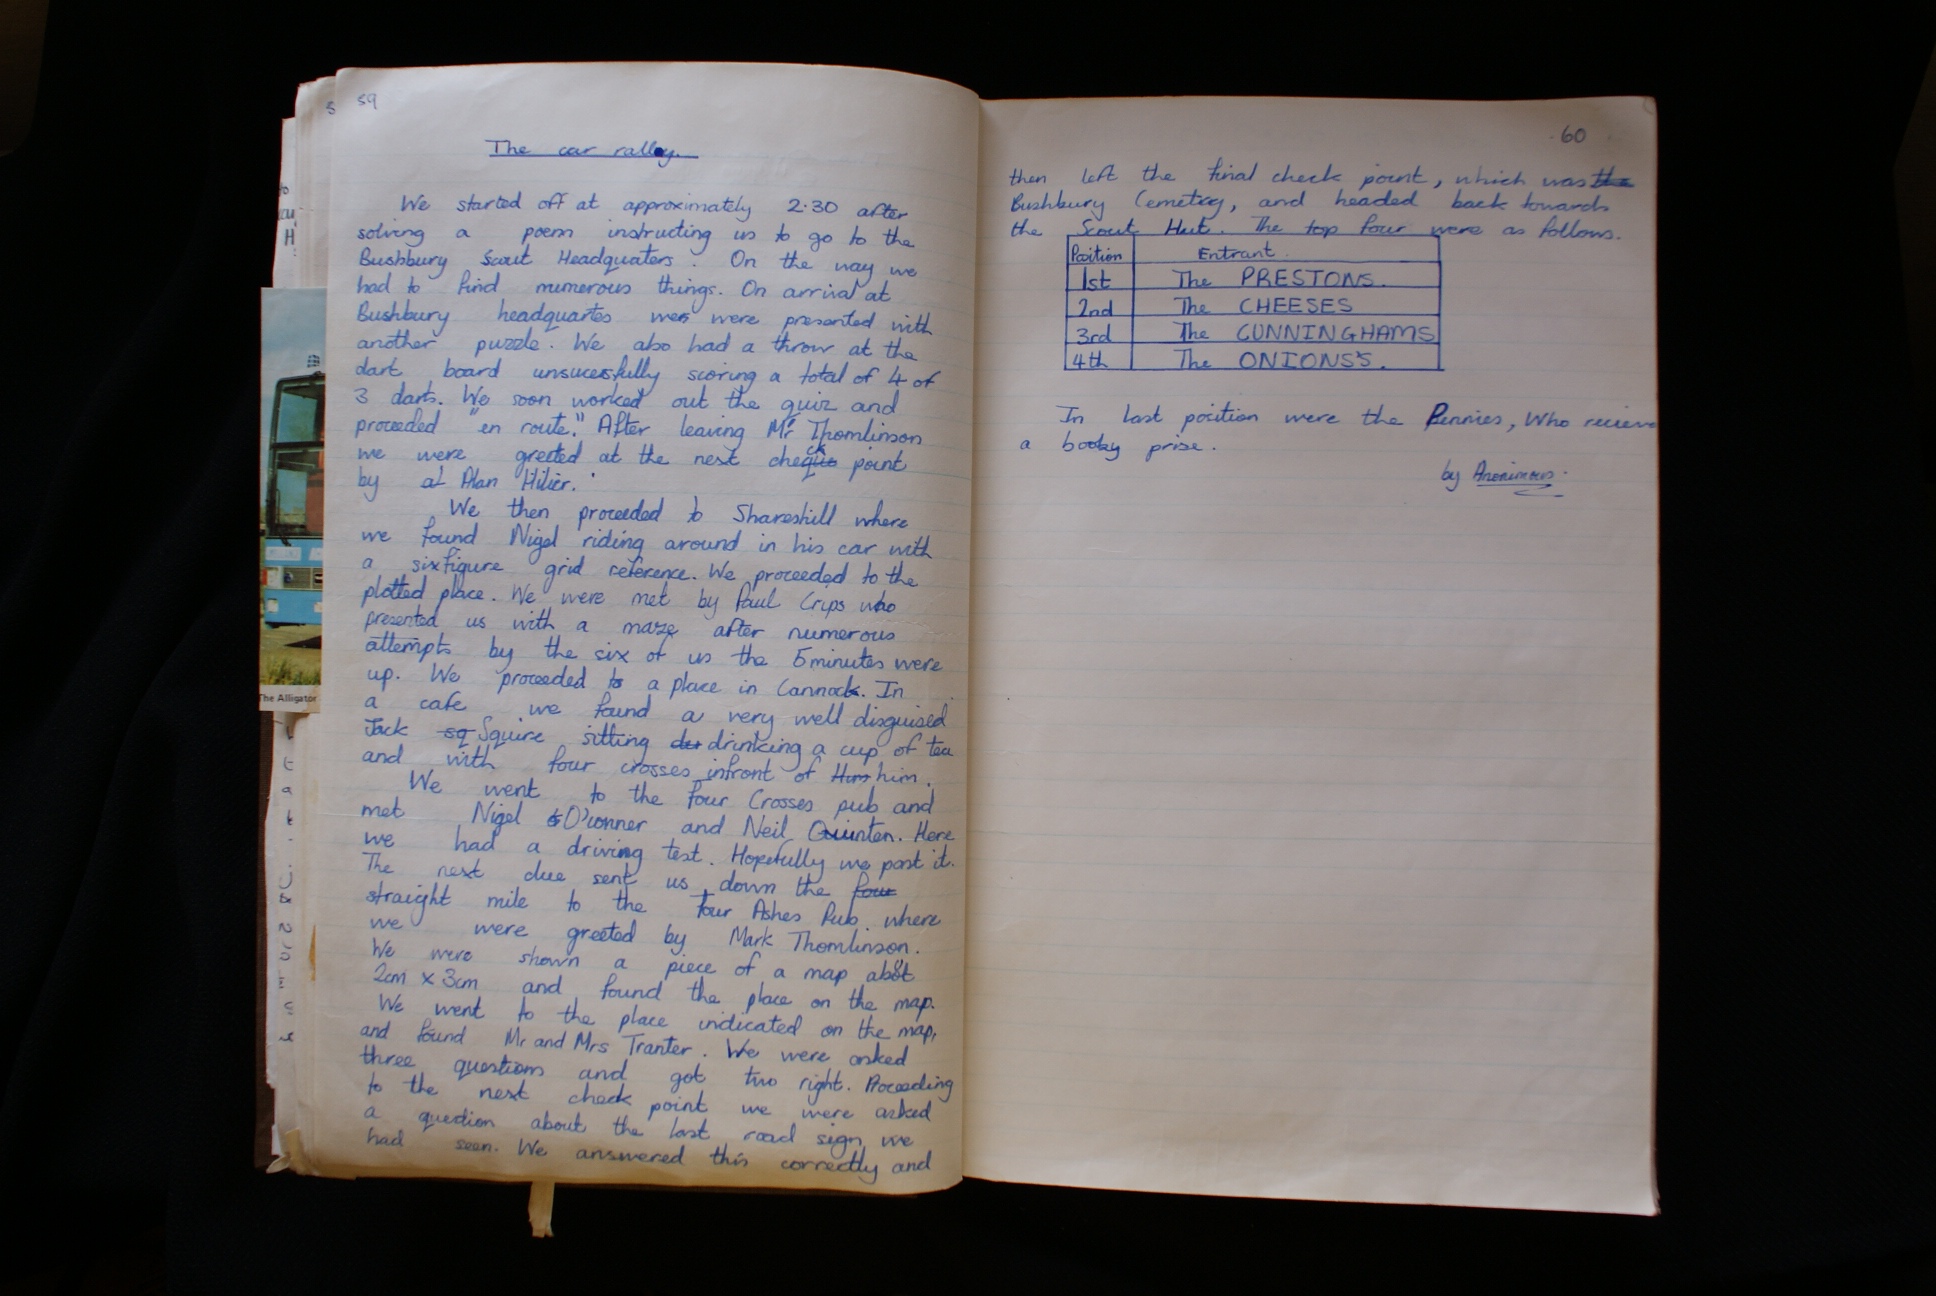 59
The car ralley.
We started off at approximately 2.30 after
solving a poem instructing us to go to the
Bushbury Scout Headquaters. On the way we
had to find numerous things. On arrival at
Bushbury headquartes were presented with
another puzzle. We also had a throw at the
dart board unsucesfully scoring a total of 4 of
3 darts. We soon worked out the quiz and
proceeded "en route." After leaving Mr Thomlinson
we were greeted at the next check point
by al Alan Hilier.
We then proceeded to Shareshill where
we found Nigel riding around in his car with
a six figure grid reference. We proceeded to the
plotted place. We were met by Paul Crips who
presented us with a maze after numerous
attempts by the six of us the 5 minutes were
up. We proceeded to a place in Cannock. In
a cafe we found a very well disguised
Jack sq Squire sitting drinking a cup of tea
and with four crosses infront of Him him.
We went to the four Crosses pub and
met Nigel O'conner and Neil Quinten. Here
we had a driving test. Hopefully we past it.
The next clue sent us down the four
straight mile to the four Ashes Pub where
we were greeted by Mark Thomlinson.
We were shown a piece of a map about
2cm x 3cm and found the place on the map.
We went to the place indicated on the map,
and found Mr and Mrs Tranter. We were asked
three questions and got two right. Proceeding
to the next check point we were asked
a question about the last road sign we
had seen. We answered this correctly and
The Alligator
60
then left the final check point, which was the
Bushbury Cemetry, and headed back towards
the Scout Hut. The top four were as follows.
Position Entrant.
1st The PRESTONS.
2nd The CHEESES
3rd The CUNNINGHAMS
4th The ONIONS'S.
In last position were the Pennies, Who recieve
a booby prise.
by Anonimous.